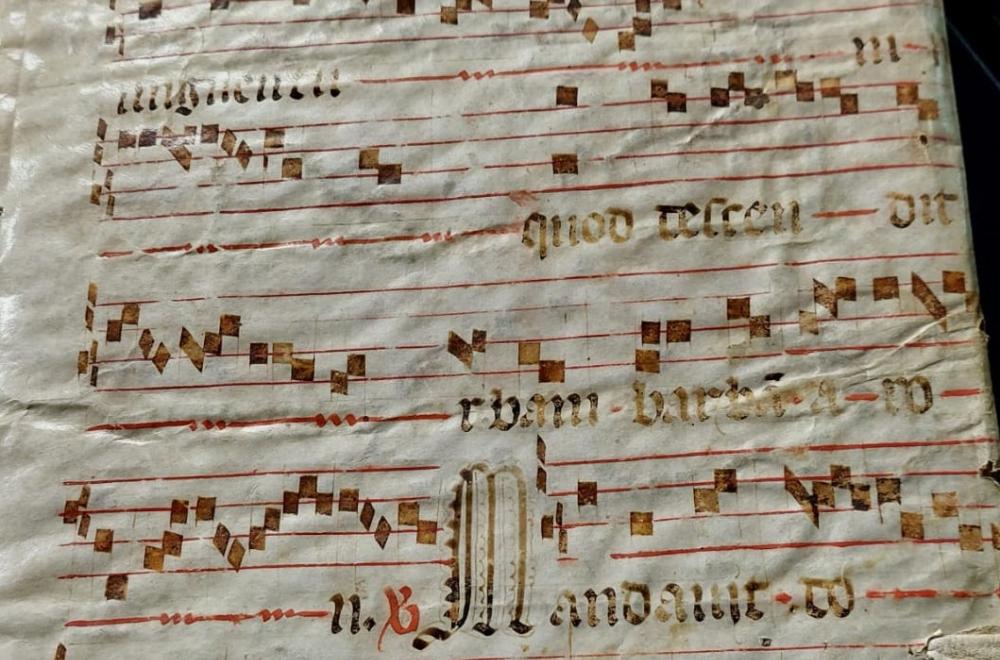 unguentu in
quod descen dit
rbam - barbā - a - ro
n. ℣ Mandauit - do